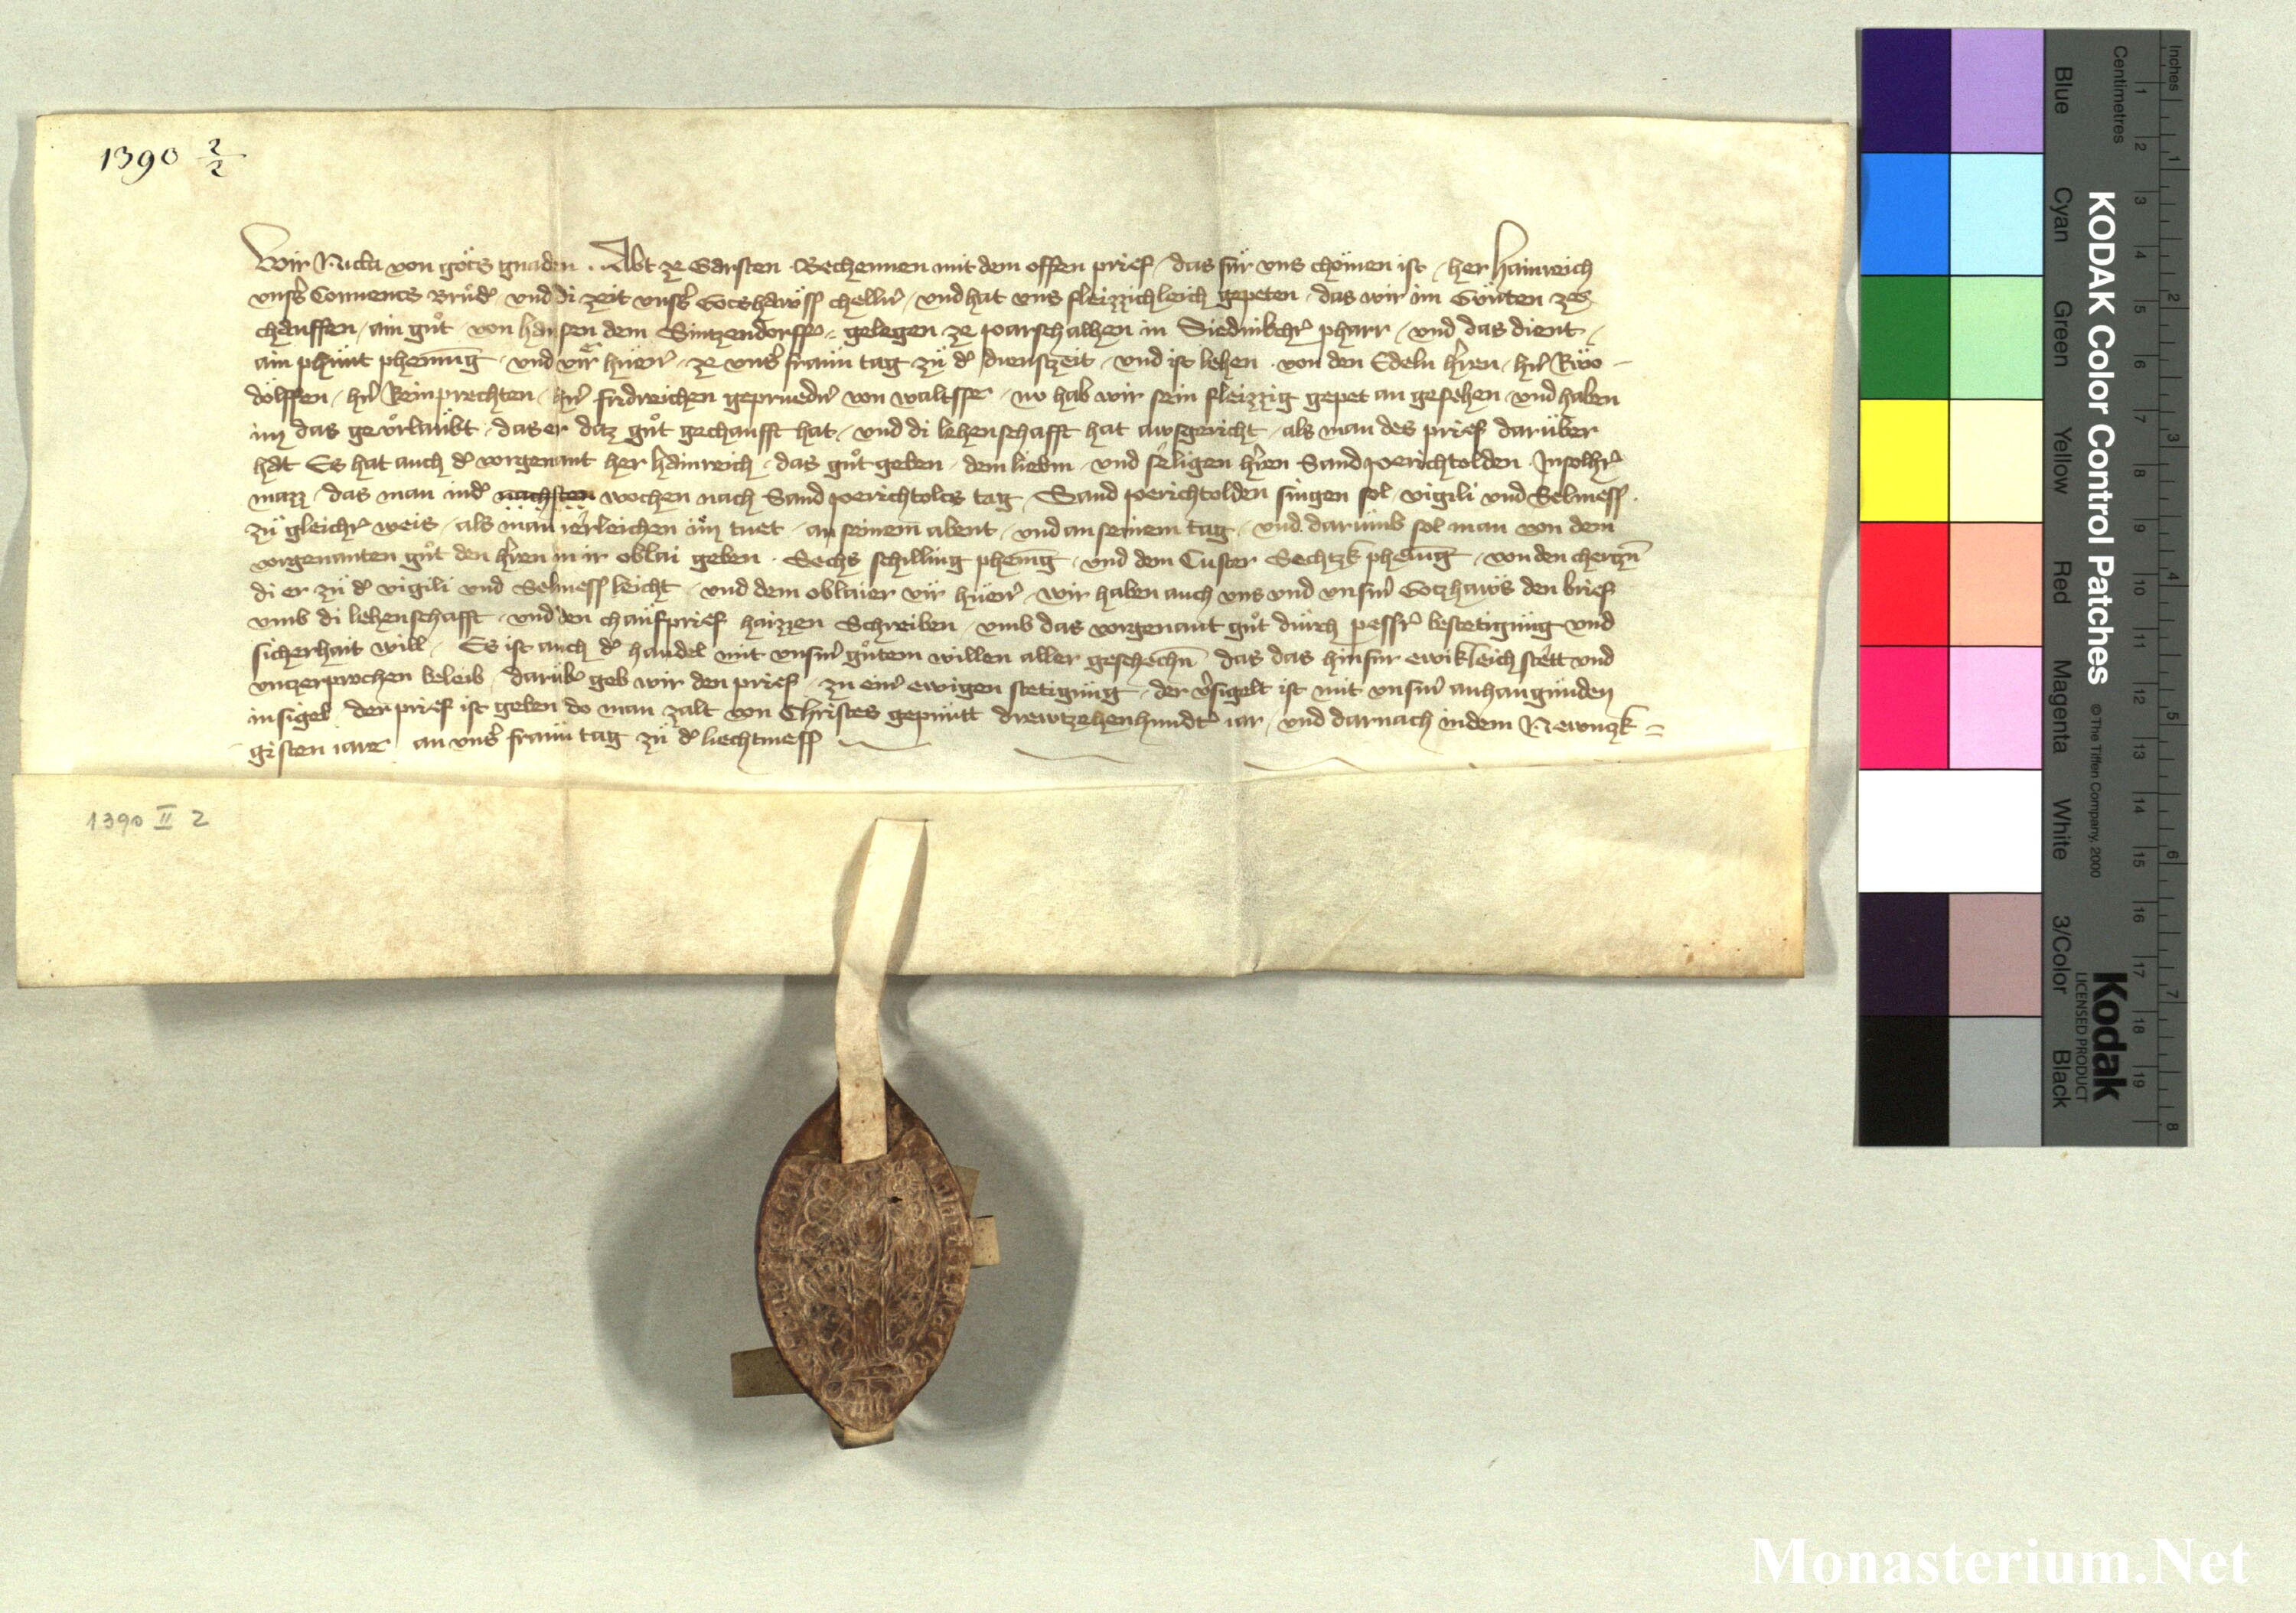 1390 2/2
Wir Nicla von gots gnaden ·· Abt ze Garsten · Bechennen mit dem offen prief / das für vns chömen ist / her Hainreich
vnsers Conuents Brůder vnd di zeit vnsers Gotshawss chellner / vnd hat vns fleizzichleich gepeten / das wir im Günten ze
chauffen / ain gůt von Hansen dem Sintzendorffer gelegen ze parschalhen in Siednikcher pharr / vnd das dient /
ain phunt phenning vnd vir hüner / ze vnser frawn tag zu der dienstzeit / vnd ist lehen von den Edeln herren / hern Rüo-
dölffen / hern Reinprechten / hern fridreichen geprueder von waltsse / nv hab wir sein fleizzig gepet an gesehen vnd haben
im das gevrlaubt / das er daz gůt gechaufft hat / vnd di lehenschafft hat awsgericht / als man des prief darüber
hat Es hat auch der vorgenant her Hainreich / das gůt geben / dem liebm vnd seligen herren Sand perichtolden Insolher
mazz / das man inder nachsten wochen nach Sand perichtolts tag / Sand perichtolden singen sol / vigili vnd Selmess /
zu gleicher weis / als man ierleichen im tuet / an seinem abent / vnd an seinem tag / vnd darumb sol man von dem
vorgenanten gůt den herren in ir oblai geben · Sechs schilling phening / vnd dem Custer Sechtzk phening / von den cherczn
di er zu der vigili vnd Selmess leicht / vnd dem oblaier vir hüner / wir haben auch vns vnd vnserm Gotzhaws den brief
vmb di lehenschafft / vnd den chaufprief haizzen Schreiben / vmb das vorgenant gůt durch pesser bestetigung vnd
sicherhait will / Es ist auch der handel mit vnserm gůtem willen aller geschechn das das hinfur ewikleich stett vnd
vnczerprochen beleib / Darüber geb wir den prief / zu einer ewigen stetigung / der versigelt ist mit vnserm anhangunden
insigel / der prief ist geben do man zalt von Christes gepurtt drewtzehenhundert iar / vnd darnach in dem Newnczk =
gisten iare an vnser frawn tag zu der liechtmess
1390 II 2
Inches
Centimetres
Blue Cyan Green Yellow Red Magenta White 3/Color Black
KODAK Color Control Patches © The Tiffen Company, 2000
Kodak
LICENSED PRODUCT
1 2 3 4 5 6 7 8 9 10 11 12 13 14 15 16 17 18 19
1 2 3 4 5 6 7 8
Monasterium.Net